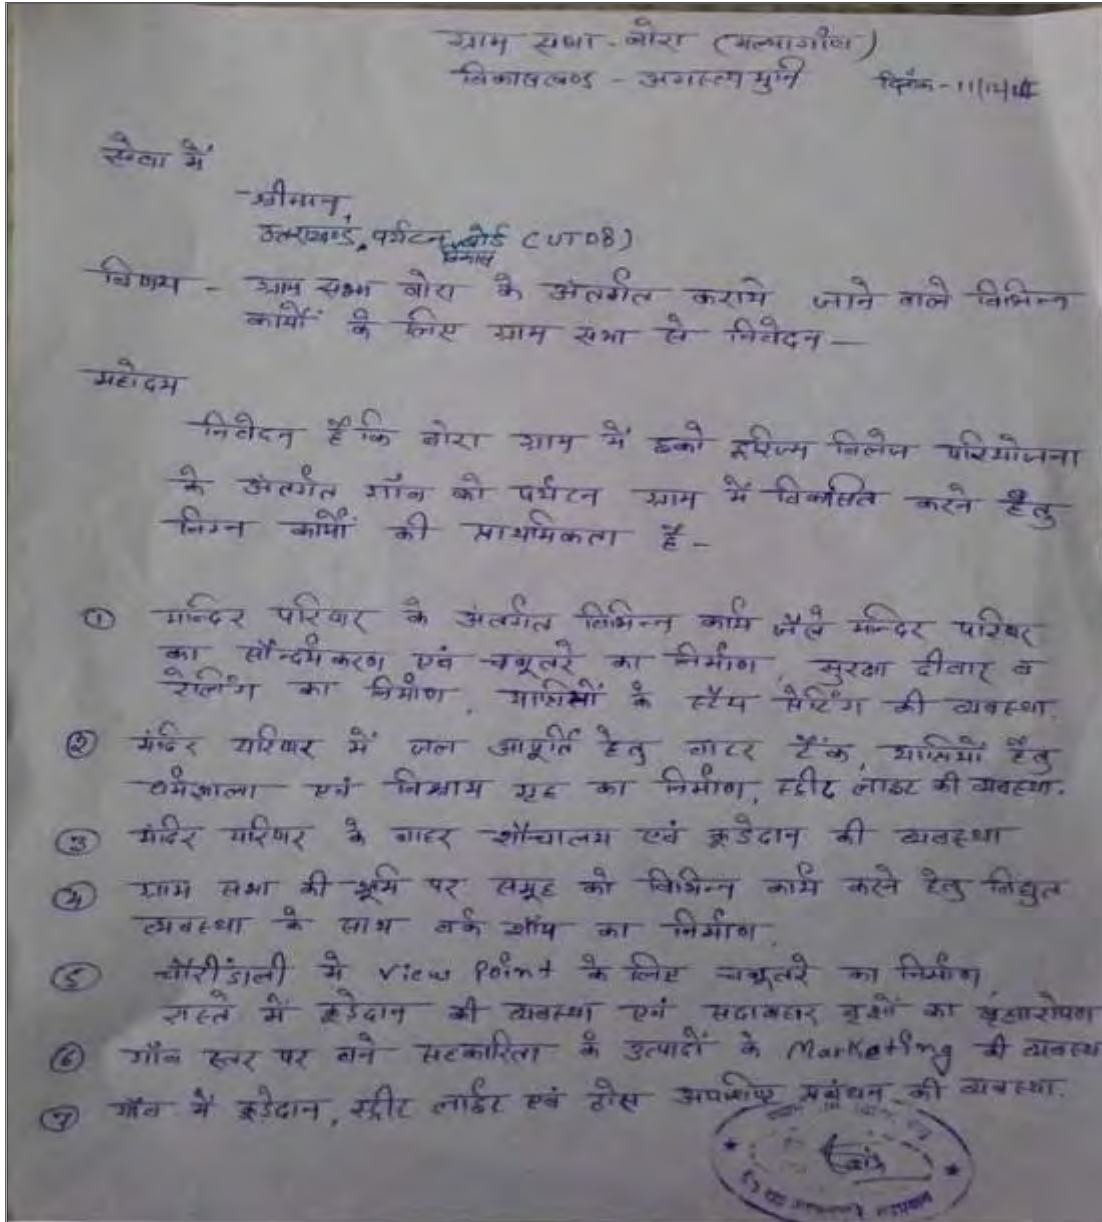 ग्राम सभा - बोरा (मल्यागाँव)
विकासखण्ड - अगस्त्यमुनि दिनांक - 11/12/
सेवा में
- श्रीमान,
उत्तराखण्ड, पर्यटन विकास बोर्ड (UTDB)
विषय - ग्राम सभा बोरा के अंतर्गत कराये जाने वाले विभिन्न
कार्यों के लिए ग्राम सभा से निवेदन —
महोदय
निवेदन है कि बोरा ग्राम में इको टूरिज्म विलेज परियोजना
के अंतर्गत गाँव को पर्यटन ग्राम में विकसित करने हेतु
निम्न कार्यों की प्राथमिकता है -
① मन्दिर परिषर के अंतर्गत विभिन्न कार्य जैसे मन्दिर परिषर
का सौन्दर्यकरण एवं चबूतरे का निर्माण, सुरक्षा दीवार व
रेलिंग का निर्माण, यात्रियों के स्टैप सेटिंग की व्यवस्था.
② मंदिर परिषर में जल आपूर्ति हेतु वाटर टैंक, यात्रियों हेतु
धर्मशाला एवं विश्राम गृह का निर्माण, स्ट्रीट लाइट की व्यवस्था.
③ मंदिर परिषर के बाहर शौचालय एवं कूडेदान की व्यवस्था
④ ग्राम सभा की भूमि पर समूह को विभिन्न कार्य करने हेतु विद्युत
व्यवस्था के साथ वर्क शॉप का निर्माण.
⑤ चौरीडाली में View Point के लिए चबूतरे का निर्माण,
रास्ते में कूडेदान की व्यवस्था एवं सदाबहार वृक्षों का वृक्षारोपण
⑥ गाँव स्तर पर बने सहकारिता के उत्पादों के Marketing की व्यवस्था
⑦ गाँव में कूडेदान, स्ट्रीट लाईट एवं ठोस अपशिष्ट प्रबंधन की व्यवस्था.